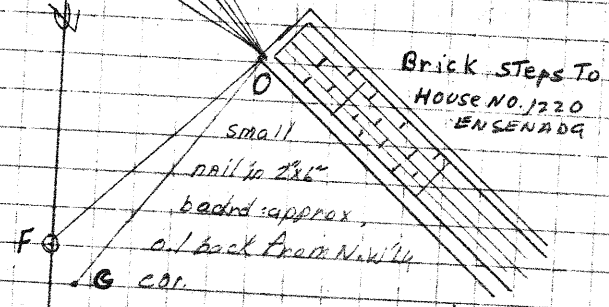 Brick Steps To
House No. 1220
ENSENADA
O
small
nail in 2"x6"
board : approx,
0.1 back from N.W'ly
F
G cor.